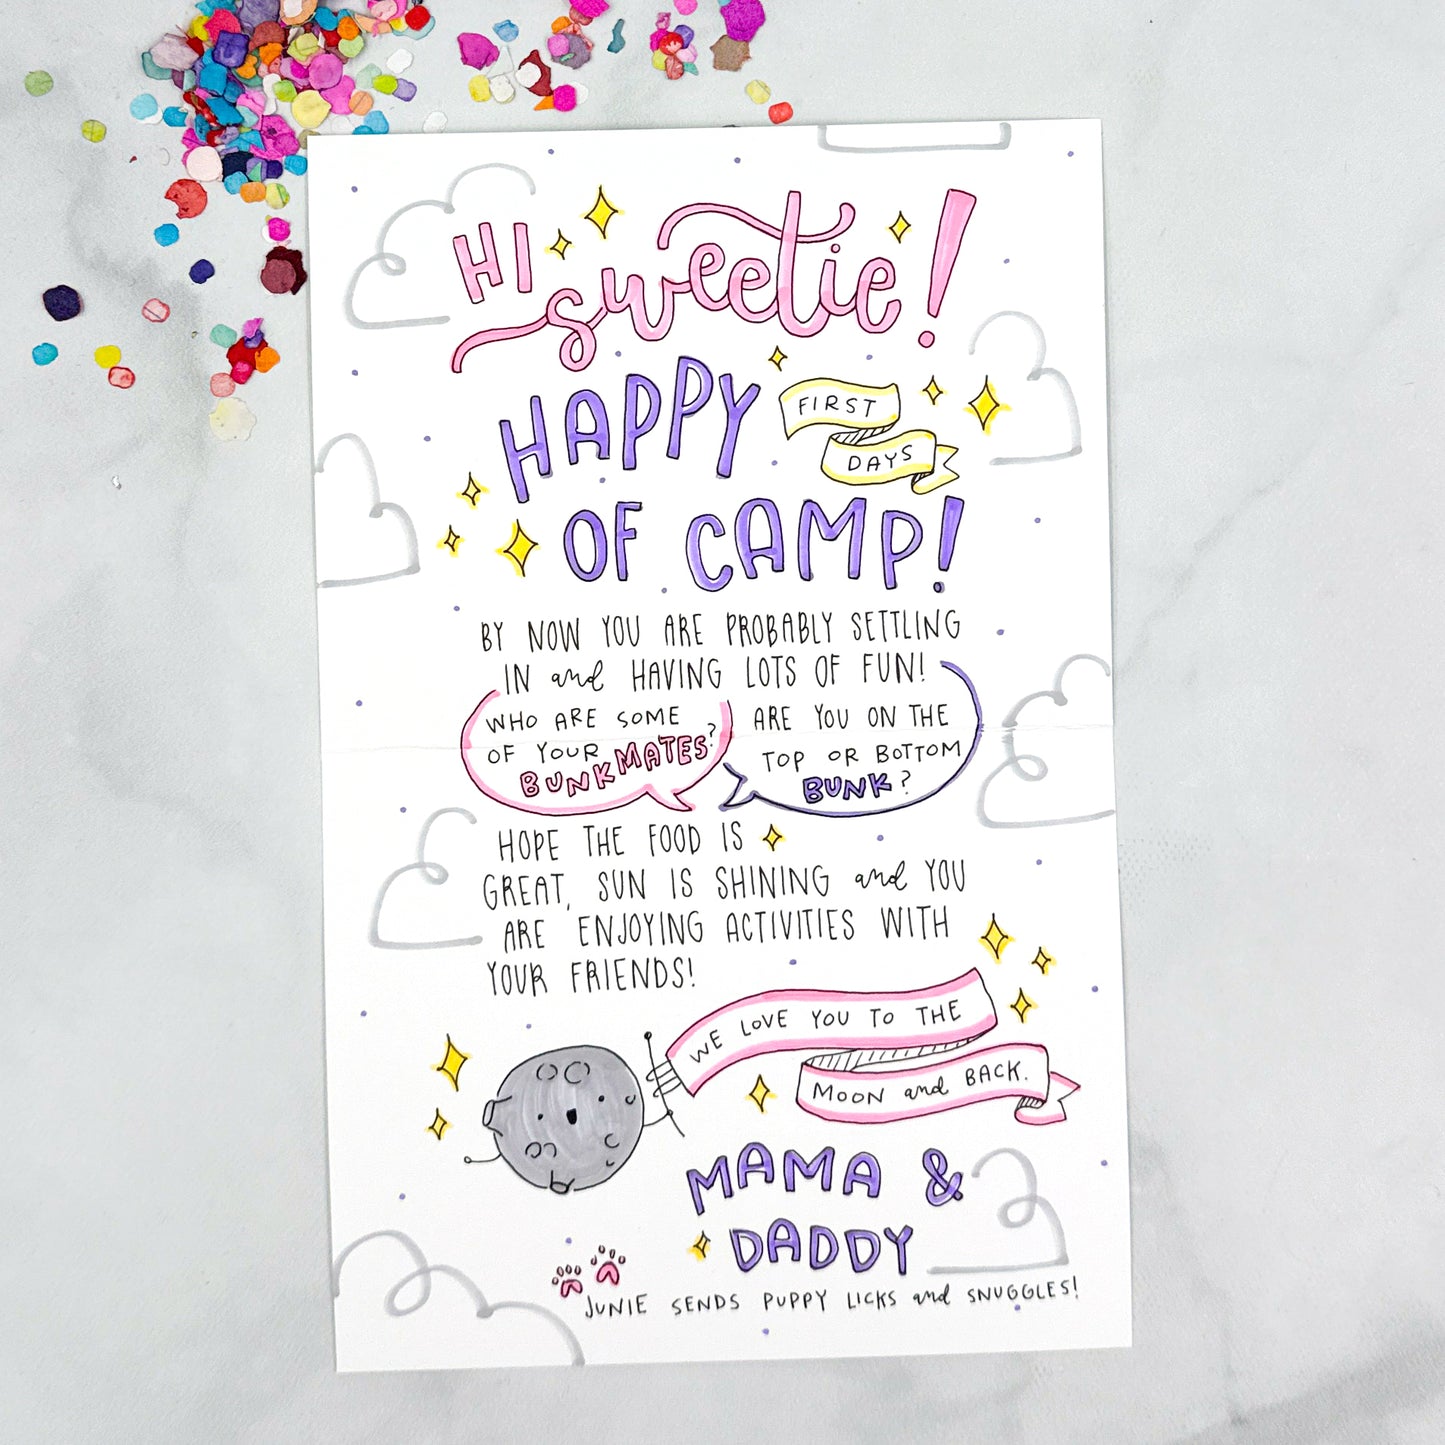 HI
sweetie!
HAPPY
FIRST
DAYS
OF CAMP!
BY NOW YOU ARE PROBABLY SETTLING
IN and HAVING LOTS OF FUN!
WHO ARE SOME
OF YOUR
BUNKMATES?
ARE YOU ON THE
TOP OR BOTTOM
BUNK?
HOPE THE FOOD IS
GREAT, SUN IS SHINING and YOU
ARE ENJOYING ACTIVITIES WITH
YOUR FRIENDS!
WE LOVE YOU TO THE
MOON and BACK.
MAMA &
DADDY
JUNIE SENDS PUPPY LICKS and SNUGGLES!